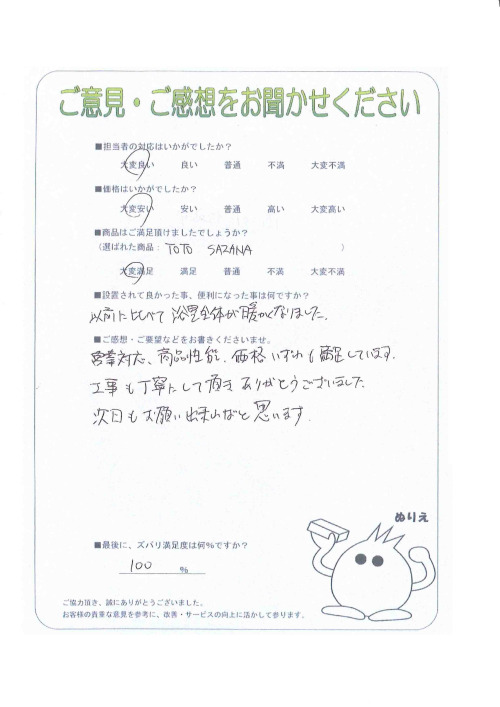 ご意見・ご感想をお聞かせください
■担当者の対応はいかがでしたか？
大変良い 良い 普通 不満 大変不満
■価格はいかがでしたか？
大変安い 安い 普通 高い 大変高い
■商品はご満足頂けましたでしょうか？
（選ばれた商品： TOTO SAZANA ）
大変満足 満足 普通 不満 大変不満
■設置されて良かった事、便利になった事は何ですか？
以前に比べて 浴室全体が暖かくなりました。
■ご感想・ご要望などをお書きくださいませ。
営業対応、商品性能、価格いずれも満足しています。
工事も丁寧にして頂きありがとうございました
次回もお願い出来ればなと思います。
ぬりえ
■最後に、ズバリ満足度は何％ですか？
100 ％
ご協力頂き、誠にありがとうございました。
お客様の貴重な意見を参考に、改善・サービスの向上に活かして参ります。